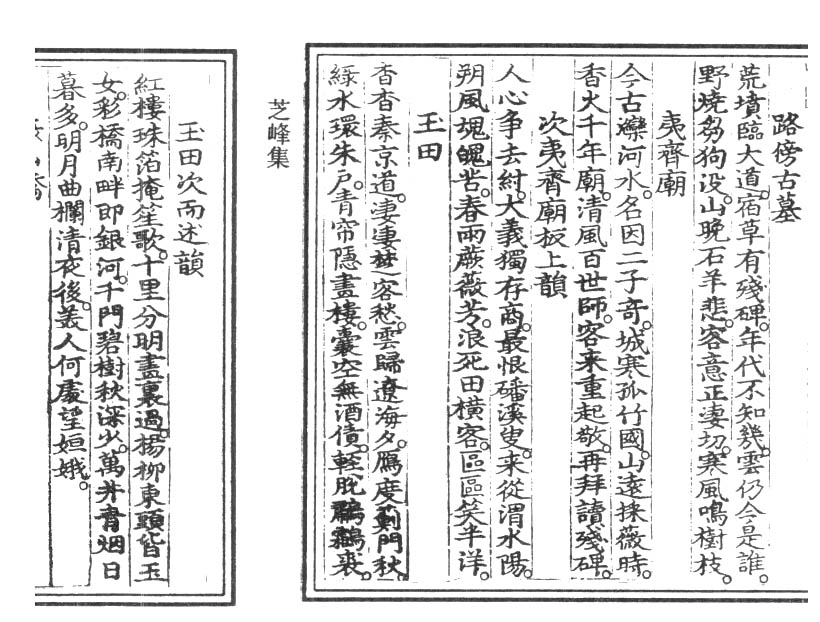 路傍古墓
荒墳臨大道。宿草有殘碑。年代不知幾。雲仍今是誰。
野燒芻狗没。山晚石羊悲。客意正凄切。寒風鳴樹枝。
夷齊廟
今古灤河水。名因二子奇。城寒孤竹國。山遠採薇時。
香火千年廟。清風百世師。客来重起敬。再拜讀殘碑。
次夷齊廟板上韻
人心争去紂。大義獨存商。最恨磻溪叟。来從渭水陽。
朔風塊魄苦。春雨蕨薇芳。浪死田橫客。區區笑半洋。
玉田
杳杳秦京道。凄凄楚客愁。雲歸遼海夕。鴈度薊門秋。
綠水環朱戶。青帘隱畫樓。囊空無酒債。輕脫鷫鸘裘。
芝峰集
玉田次而述韻
紅樓珠箔掩笙歌。十里分明畫裏過。楊柳東頭皆玉
女。彩橋南畔即銀河。千門碧樹秋深少。萬井青烟日
暮多。明月曲欄清夜後。美人何處望姮娥。